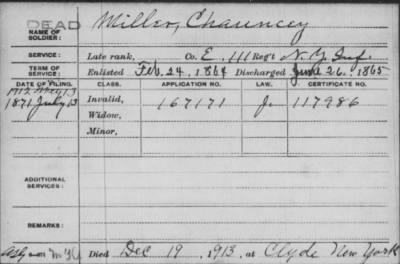 DEAD
NAME OF SOLDIER: Miller, Chauncey
SERVICE: Late rank, Co. E, 111 Reg't N. Y. Inf.
TERM OF SERVICE: Enlisted Feb. 24, 1864 Discharged June 26, 1865
DATE OF FILING. CLASS. APPLICATION NO. LAW. CERTIFICATE NO.
1912 May 13
1871 July 13 Invalid, 167171 J. 117986
Widow,
Minor,
ADDITIONAL SERVICES:
REMARKS:
Died Dec 19, 1913, at Clyde New York